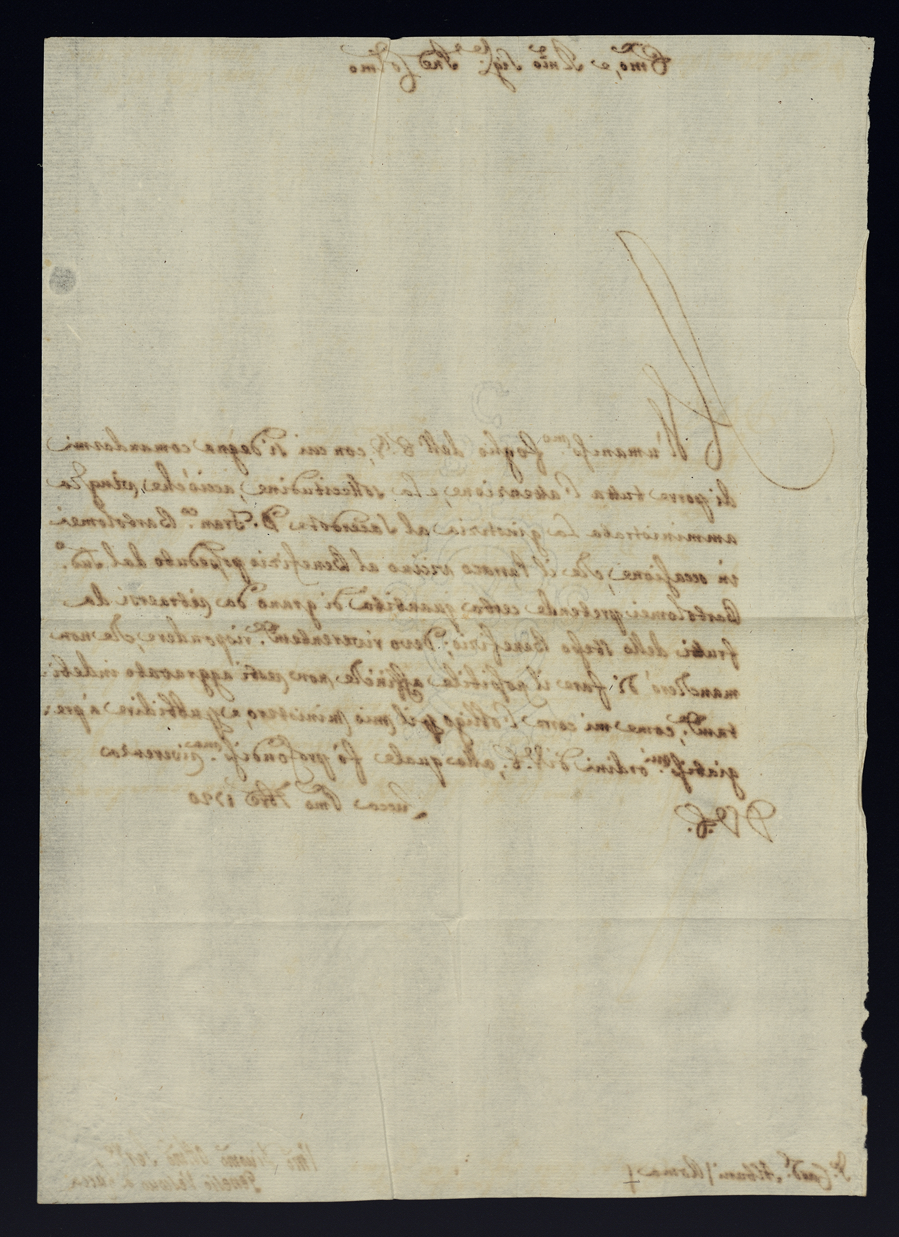 Emo, e Rmo Sig.re Pne Colmo
L'umaniss.mo foglio dell'E.V., con cui si degna comandarmi
di porre tutta l'attenzione, e la sollecitudine, acciò che venga
amministrata la giustizia al Sacerdote D. Fran.co Bartolomei
in occasione, che il Parroco vicino al Beneficio posseduto dal sud.o
Bartolomei pretende certa quantità di grano da estraersi da
frutti dello stesso Beneficio; devo riverentem.te rispondere, che non
mancherò di fare il possibile affinche non resti aggravato indebi-
tam.te, come mi corre l'obligo per il mio ministero, e per ubbidire a pre-
giatiss.mi ordini di V.E., alla quale fò profondiss.ma riverenza
D.V.E.
Lucca 1720
S.r Card.l Albani / Roma